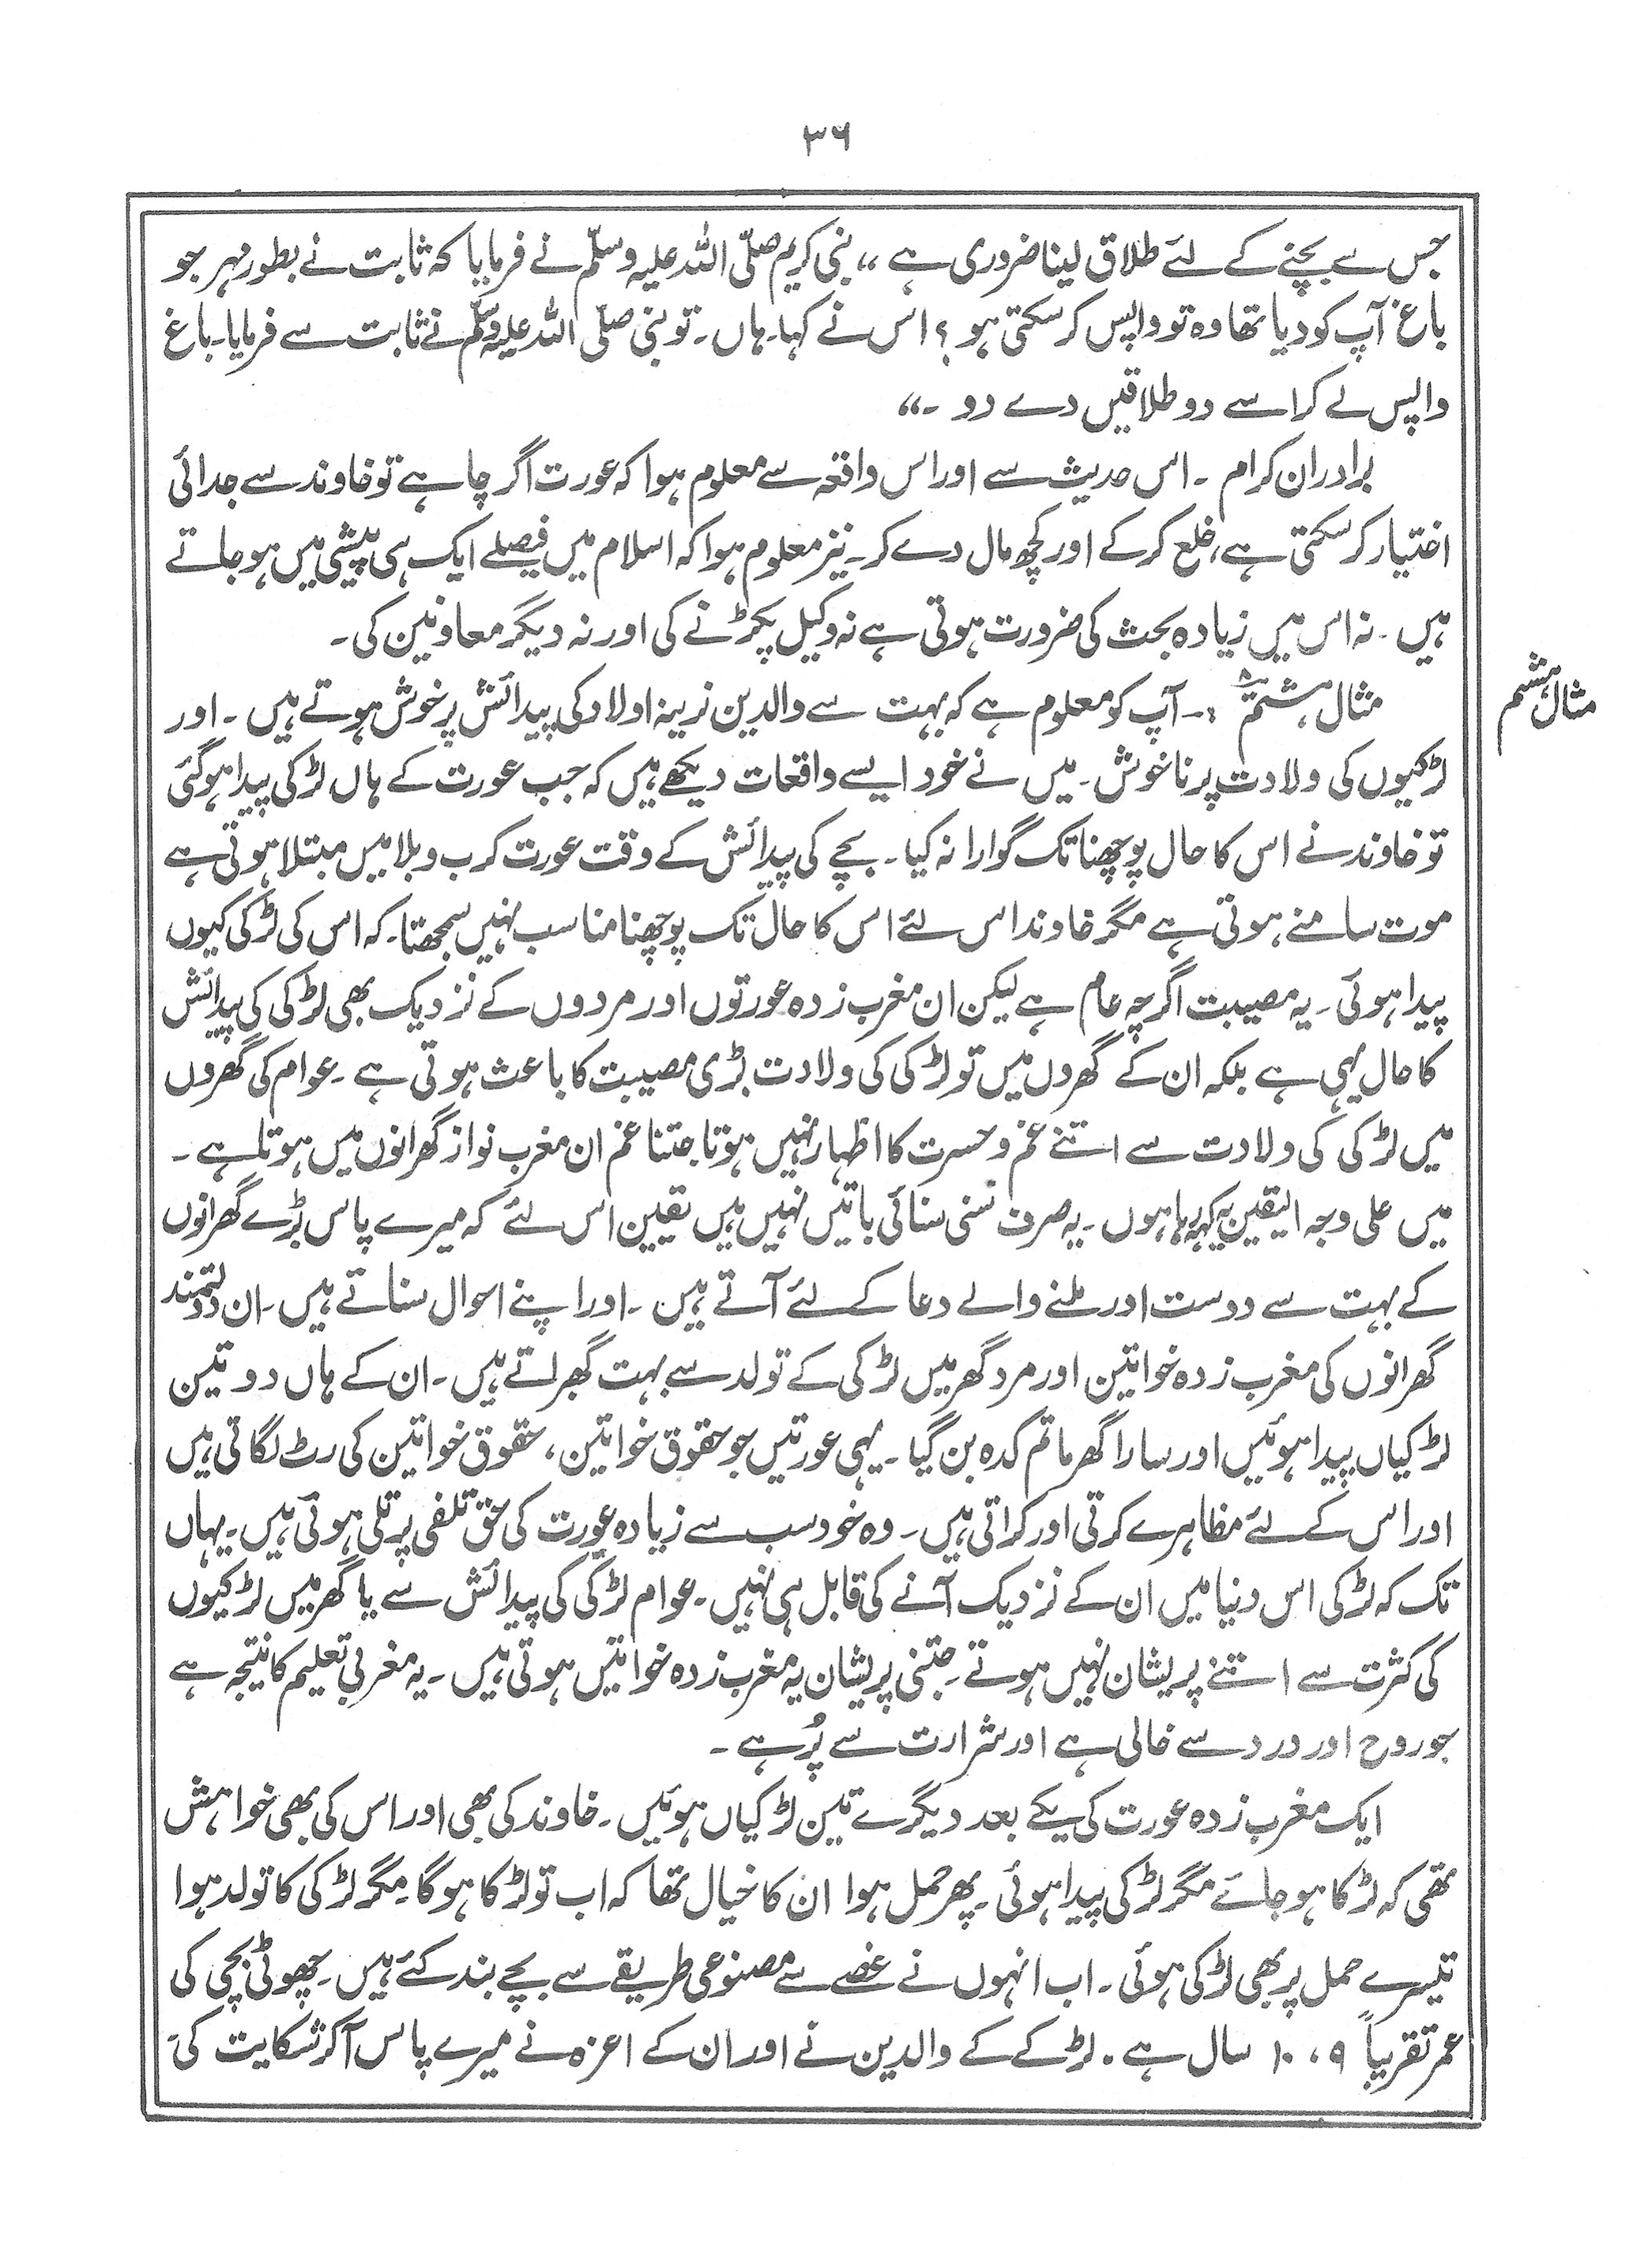 ۳۶
جس سے بچنے کے لئے طلاق لینا ضروری ہے ،، نبی کریم صلّی اللہ علیہ وسلّم نے فرمایا کہ ثابت نے بطور مہر جو
باغ آپ کو دیا تھا وہ تو واپس کر سکتی ہو ؟ اس نے کہا۔ ہاں۔ تو نبی صلّی اللہ علیہ وسلّم نے ثابت سے فرمایا۔ باغ
واپس لے کر اسے دو طلاقیں دے دو ۔،،
برادران کرام ۔ اس حدیث سے اور اس واقعہ سے معلوم ہوا کہ عورت اگر چاہے تو خاوند سے جدائی
اختیار کر سکتی ہے، خلع کر کے اور کچھ مال دے کر۔ نیز معلوم ہوا کہ اسلام میں فیصلے ایک ہی پیشی میں ہو جاتے
ہیں ۔ نہ اس میں زیادہ بحث کی ضرورت ہوتی ہے نہ وکیل پکڑنے کی اور نہ دیگر معاونین کی ۔
مثال ہشتم
مثال ہشتم ۸ :۔ آپ کو معلوم ہے کہ بہت سے والدین نرینہ اولاد کی پیدائش پر خوش ہوتے ہیں ۔ اور
لڑکیوں کی ولادت پر ناخوش ۔ میں نے خود ایسے واقعات دیکھے ہیں کہ جب عورت کے ہاں لڑکی پیدا ہو گئی
تو خاوند نے اس کا حال پوچھنا تک گوارا نہ کیا ۔ بچے کی پیدائش کے وقت عورت کرب و بلا میں مبتلا ہوتی ہے
موت سامنے ہوتی ہے مگر خاوند اس لئے اس کا حال تک پوچھنا مناسب نہیں سمجھتا۔ کہ اس کی لڑکی کیوں
پیدا ہوئی ۔ یہ مصیبت اگرچہ عام ہے لیکن ان مغرب زدہ عورتوں اور مردوں کے نزدیک بھی لڑکی کی پیدائش
کا حال یہی ہے بلکہ ان کے گھروں میں تو لڑکی کی ولادت بڑی مصیبت کا باعث ہوتی ہے ۔ عوام کی گھروں
میں لڑکی کی ولادت سے اتنے غم و حسرت کا اظہار نہیں ہوتا جتنا غم ان مغرب نواز گھرانوں میں ہوتا ہے ۔
میں علی وجہ الیقین یہ کہہ رہا ہوں ۔ یہ صرف سنی سنائی باتیں نہیں ہیں یقین اس لئے کہ میرے پاس بڑے گھرانوں
کے بہت سے دوست اور ملنے والے دعا کے لئے آتے ہیں ۔ اور اپنے احوال سناتے ہیں ۔ ان دولتمند
گھرانوں کی مغرب زدہ خواتین اور مرد گھر میں لڑکی کے تولد سے بہت گھبراتے ہیں ۔ ان کے ہاں دو تین
لڑکیاں پیدا ہوئیں اور سارا گھر ماتم کدہ بن گیا ۔ یہی عورتیں جو حقوق خواتین ، حقوق خواتین کی رٹ لگاتی ہیں
اور اس کے لئے مظاہرے کرتی اور کراتی ہیں ۔ وہ خود سب سے زیادہ عورت کی حق تلفی پر تلی ہوتی ہیں ۔ یہاں
تک کہ لڑکی اس دنیا میں ان کے نزدیک آنے کی قابل ہی نہیں ۔ عوام لڑکی کی پیدائش سے یا گھر میں لڑکیوں
کی کثرت سے اتنے پریشان نہیں ہوتے ۔ جتنی پریشان یہ مغرب زدہ خواتین ہوتی ہیں ۔ یہ مغربی تعلیم کا نتیجہ ہے
جو روح اور درد سے خالی ہے اور شرارت سے پُر ہے ۔
ایک مغرب زدہ عورت کی یکے بعد دیگرے تین لڑکیاں ہوئیں ۔ خاوند کی بھی اور اس کی بھی خواہش
تھی کہ لڑکا ہو جائے مگر لڑکی پیدا ہوئی ۔ پھر حمل ہوا ان کا خیال تھا کہ اب تو لڑکا ہوگا۔ مگر لڑکی کا تولد ہوا
تیسرے حمل پر بھی لڑکی ہوئی ۔ اب انہوں نے غصے سے مصنوعی طریقے سے بچے بند کئے ہیں ۔ چھوٹی بچی کی
عمر تقریباً ۹ ، ۱۰ سال ہے ۔ لڑکے کے والدین نے اور ان کے اعزہ نے میرے پاس آ کر شکایت کی